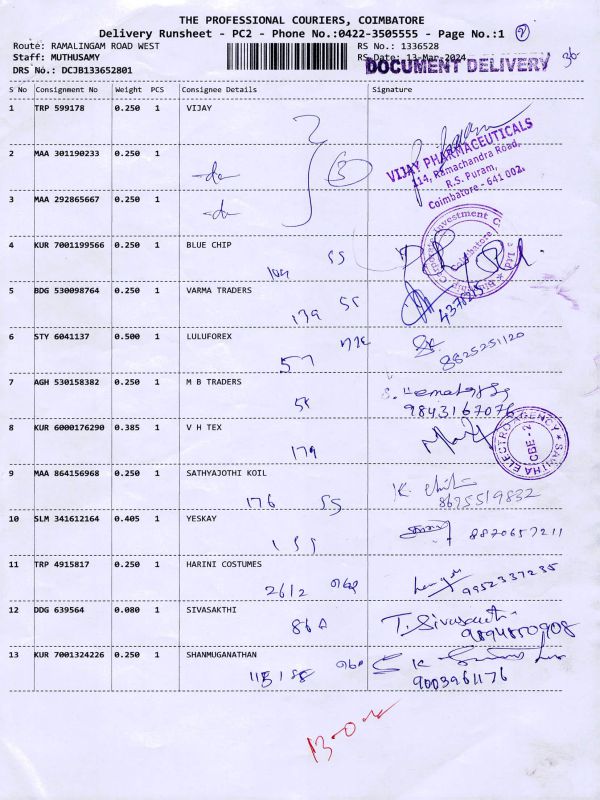 THE PROFESSIONAL COURIERS, COIMBATORE
Delivery Runsheet - PC2 - Phone No.:0422-3505555 - Page No.:1 2
Route: RAMALINGAM ROAD WEST RS No.: 1336528
Staff: MUTHUSAMY RS Date: 13-Mar-2024
DOCUMENT DELIVERY 36
DRS No.: DCJB133652801
S No Consignment No Weight PCS Consignee Details Signature
1 TRP 599178 0.250 1 VIJAY
VIJAY PHARMACEUTICALS
114, Ramachandra Road,
R.S. Puram,
Coimbatore - 641 002.
2 MAA 301190233 0.250 1 -do 3
3 MAA 292865667 0.250 1 -do
4 KUR 7001199566 0.250 1 BLUE CHIP
55
5 BDG 530098764 0.250 1 VARMA TRADERS
139 55 437815
6 STY 6041137 0.500 1 LULUFOREX
57 8825251120
7 AGH 530158382 0.250 1 M B TRADERS
9843167076
8 KUR 6000176290 0.385 1 V H TEX
179
SAMTHA ELECTRO AGENCY CBE-2
9 MAA 864156968 0.250 1 SATHYAJOTHI KOIL
176 55 8675519832
10 SLM 341612164 0.405 1 YESKAY
155 8870657211
11 TRP 4915817 0.250 1 HARINI COSTUMES
26/2 9952337235
12 DDG 639564 0.080 1 SIVASAKTHI
86A T. Sivasakthi
9894850908
13 KUR 7001324226 0.250 1 SHANMUGANATHAN
9003961176